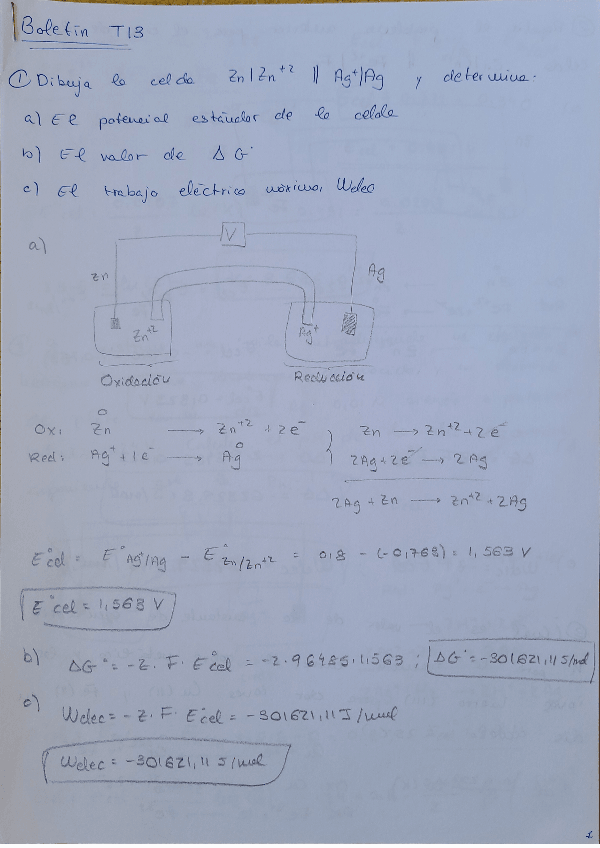 Boletín T13
① Dibuja la celda Zn | Zn⁺² || Ag⁺/Ag y determina:
a) El potencial estándar de la celda
b) El valor de ΔG°
c) El trabajo eléctrico máximo, Welec
a)
V
Zn
Ag
Zn⁺²
Ag⁺
Oxidación
Reducción
Ox: Zn⁰ ⟶ Zn⁺² + 2e⁻
Red: Ag⁺ + 1e⁻ ⟶ Ag⁰
Zn ⟶ Zn⁺² + 2e⁻
2Ag + 2e⁻ ⟶ 2Ag
2Ag + Zn ⟶ Zn⁺² + 2Ag
E°cel = E°Ag⁺/Ag - E°Zn/Zn⁺² = 0,8 - (-0,768) = 1,563 V
E°cel = 1,563 V
b) ΔG° = -z. F. E°cel = -2·96485·1,563 ; ΔG° = -301621,11 J/mol
c) Welec = -z. F. E°cel = -301621,11 J/mol
Welec = -301621,11 J/mol
1